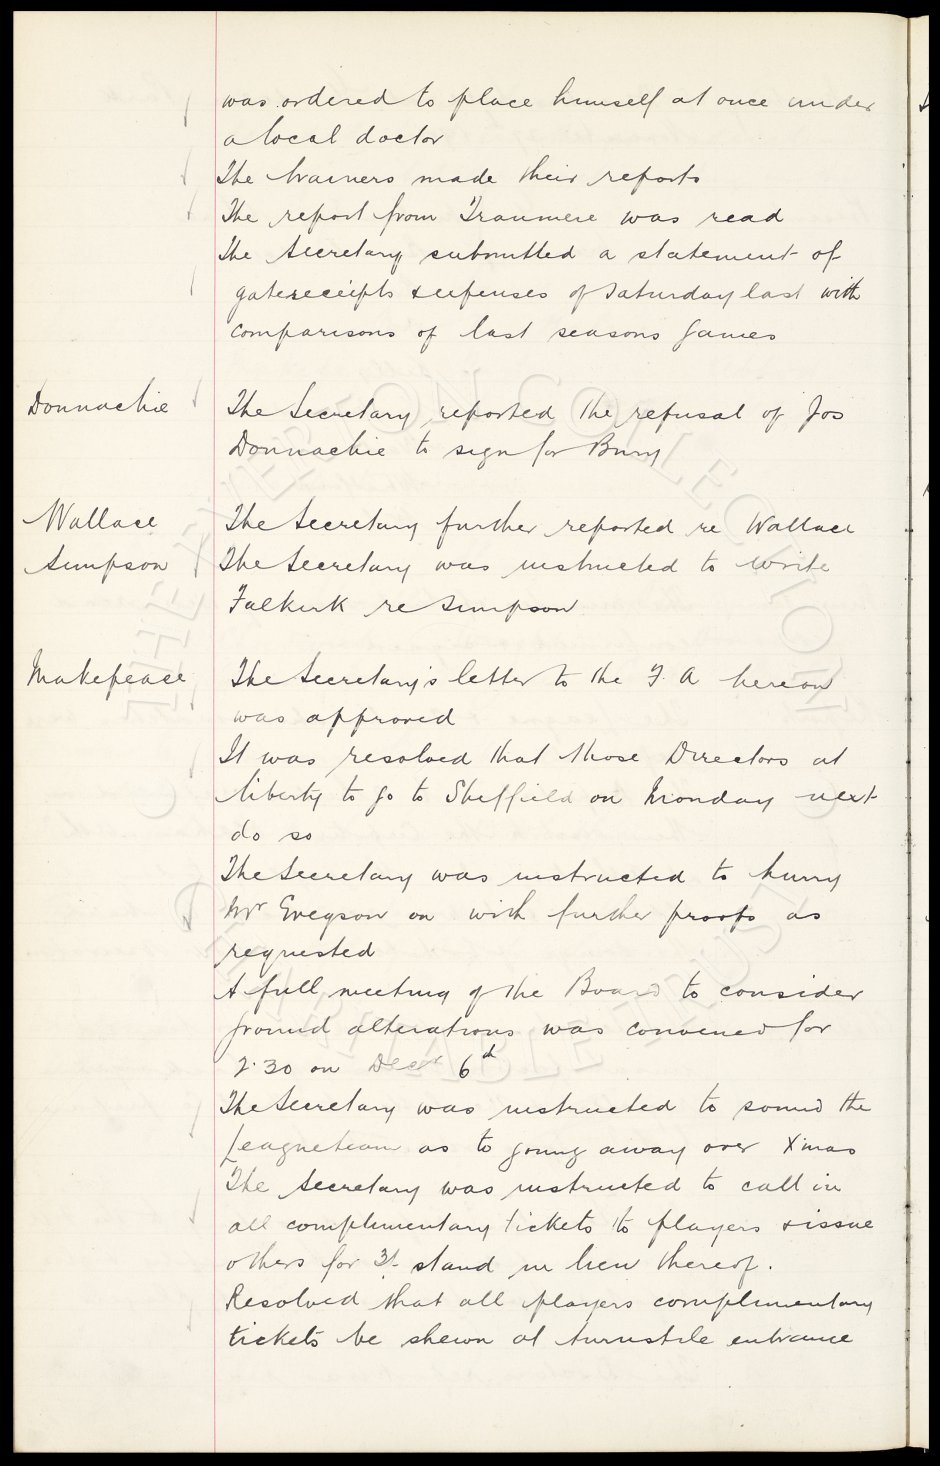 was ordered to place himself at once under
a local doctor
The trainers made their reports
The report from Tranmere was read
The Secretary submitted a statement of
gate receipts & expenses of Saturday last with
comparisons of last seasons games
Donnachie
The Secretary reported the refusal of Jos
Donnachie to sign for Bury
Wallace
The Secretary further reported re Wallace
Simpson
The Secretary was instructed to write
Falkirk re Simpson
Makepeace
The Secretary's letter to the F. A hereon
was approved
It was resolved that those Directors at
liberty to go to Sheffield on Monday next
do so
The Secretary was instructed to hurry
Mr on with further proofs as
requested
A full meeting of the Board to consider
ground alterations was convened for
2.30 on Decr 6d
The Secretary was instructed to sound the
League team as to going away over Xmas
The Secretary was instructed to call in
all complimentary tickets to players & issue
others for 3/- stand in lieu thereof.
Resolved that all players complimentary
tickets be shewn at turnstile entrance
THE EVERTON COLLECTION